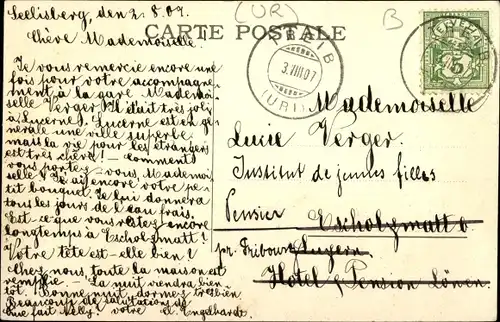 Seelisberg, den 2. 8. 07.
(UR)
B
CARTE POSTALE
Chère Mademoiselle.
Je vous remercie encore une
fois pour votre accompagne-
ment, à la gare Mademoi-
selle Verger. Il était très joli
à Lucerne! Lucerne est en gé-
nérale une ville superbe
mais la vie pour les étrangers
est très chère! – Comment
vous portez-vous, Mademoi-
selle? J'ai encore votre pe-
tit bouquet. Je lui donnerai
tous les jours de l'eau frais.
Est-ce que vous restez encore
longtemps à Escholzmatt?
Votre tête est-elle bien?
Chez nous, toute la maison est
remplie. – La nuit viendra bien
tôt. Bonne nuit dormez très bien.
Beaucoup de salutations
Que fait Nelly? votre A. Engelhardt.
3.VIII.07
(URI)
5
Mademoiselle
Lucie Verger.
Institut de jeunes filles
Pensier Escholzmatt b
pr. Fribourg Luzern
Hotel & Pension Löwen.